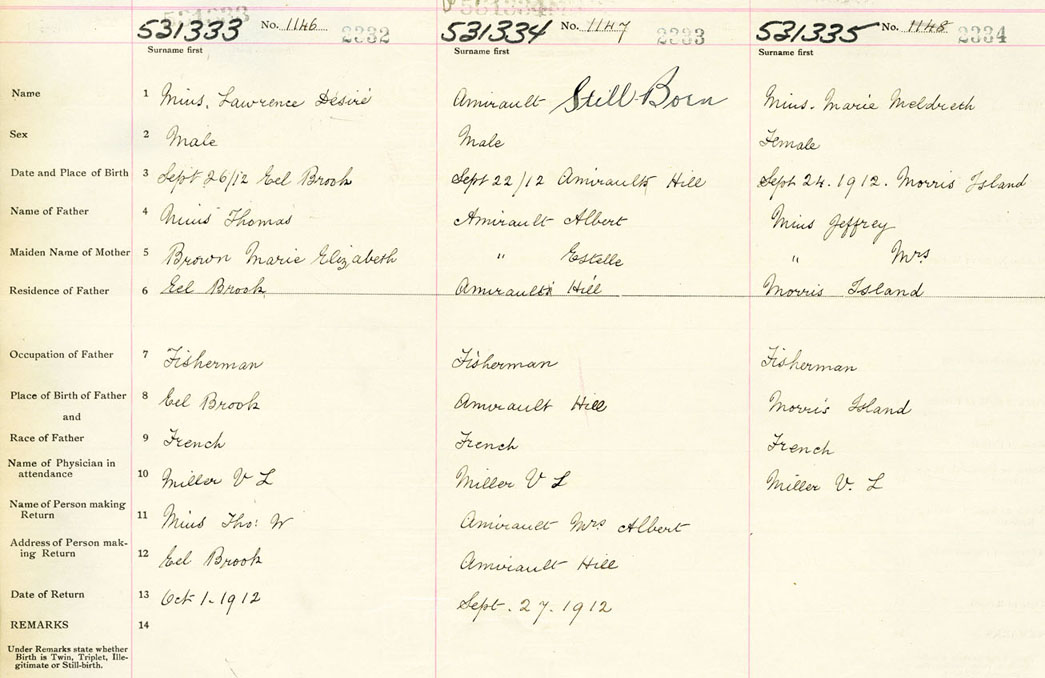 531333 No. 1146 2332 531334 No. 1147 2333 531335 No. 1148 2334
Surname first Surname first Surname first
Name 1 Mius, Lawrence Désiré Amirault Still Born Mius. Marie Meldreth
Sex 2 Male Male Female
Date and Place of Birth 3 Sept 26/12 Eel Brook Sept 22/12 Amiraults Hill Sept 24. 1912. Morris Island
Name of Father 4 Mius Thomas Amirault Albert Mius Jeffrey
Maiden Name of Mother 5 Brown Marie Elizabeth " Estelle " Mrs
Residence of Father 6 Eel Brook Amiraults Hill Morris Island
Occupation of Father 7 Fisherman Fisherman Fisherman
Place of Birth of Father 8 Eel Brook Amirault Hill Morris Island
and
Race of Father 9 French French French
Name of Physician in
attendance 10 Miller V L Miller V L Miller V. L
Name of Person making
Return 11 Mius Tho: W Amirault Mrs Albert
Address of Person mak-
ing Return 12 Eel Brook Amirault Hill
Date of Return 13 Oct 1. 1912 Sept. 27. 1912
REMARKS 14
Under Remarks state whether
Birth is Twin, Triplet, Ille-
gitimate or Still-birth.